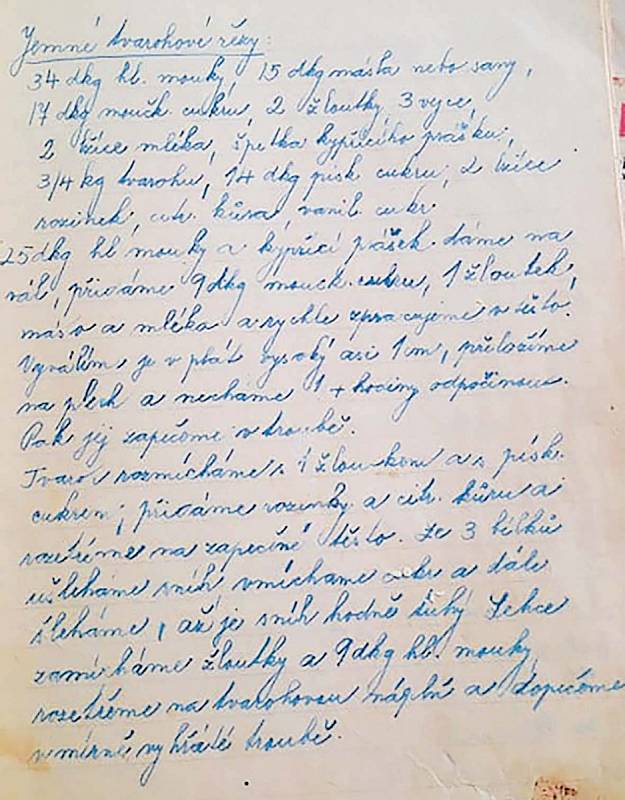 Jemné tvarohové řězy:
34 dkg hl. mouky, 15 dkg másla nebo sany,
17 dkg moučk. cukru, 2 žloutky 3 vejce,
2 lžíce mléka, špetka kypřícího prášku,
3/4 kg tvarohu, 14 dkg písk cukru, 2 lžíce
rozinek, citr. kůra, vanil. cukr.
25 dkg hl mouky a kypřící prášek dáme na
vál, přidáme 9 dkg moučk. cukru, 1 žloutek,
máslo a mléka a rychle zpracujeme v těsto.
Vyválím je v plát vysoký asi 1 cm, přeložíme
na plech a necháme 1 hodiny odpočinout.
Pak jej zapečeme v troubě.
Tvaroh rozmícháme s 1 žloutkem a s písk.
cukrem, přidáme rozinky a citr. kůru a
rozetřeme na zapečené těsto. Ze 3 bílků
ušleháme sníh, vmícháme cukr a dále
šleháme, až je sníh hodně tuhý Lehce
zamícháme žloutky a 9 dkg hl. mouky
rozetřeme na tvarohovou náplň a dopečeme
v mírně vyhřáté troubě.